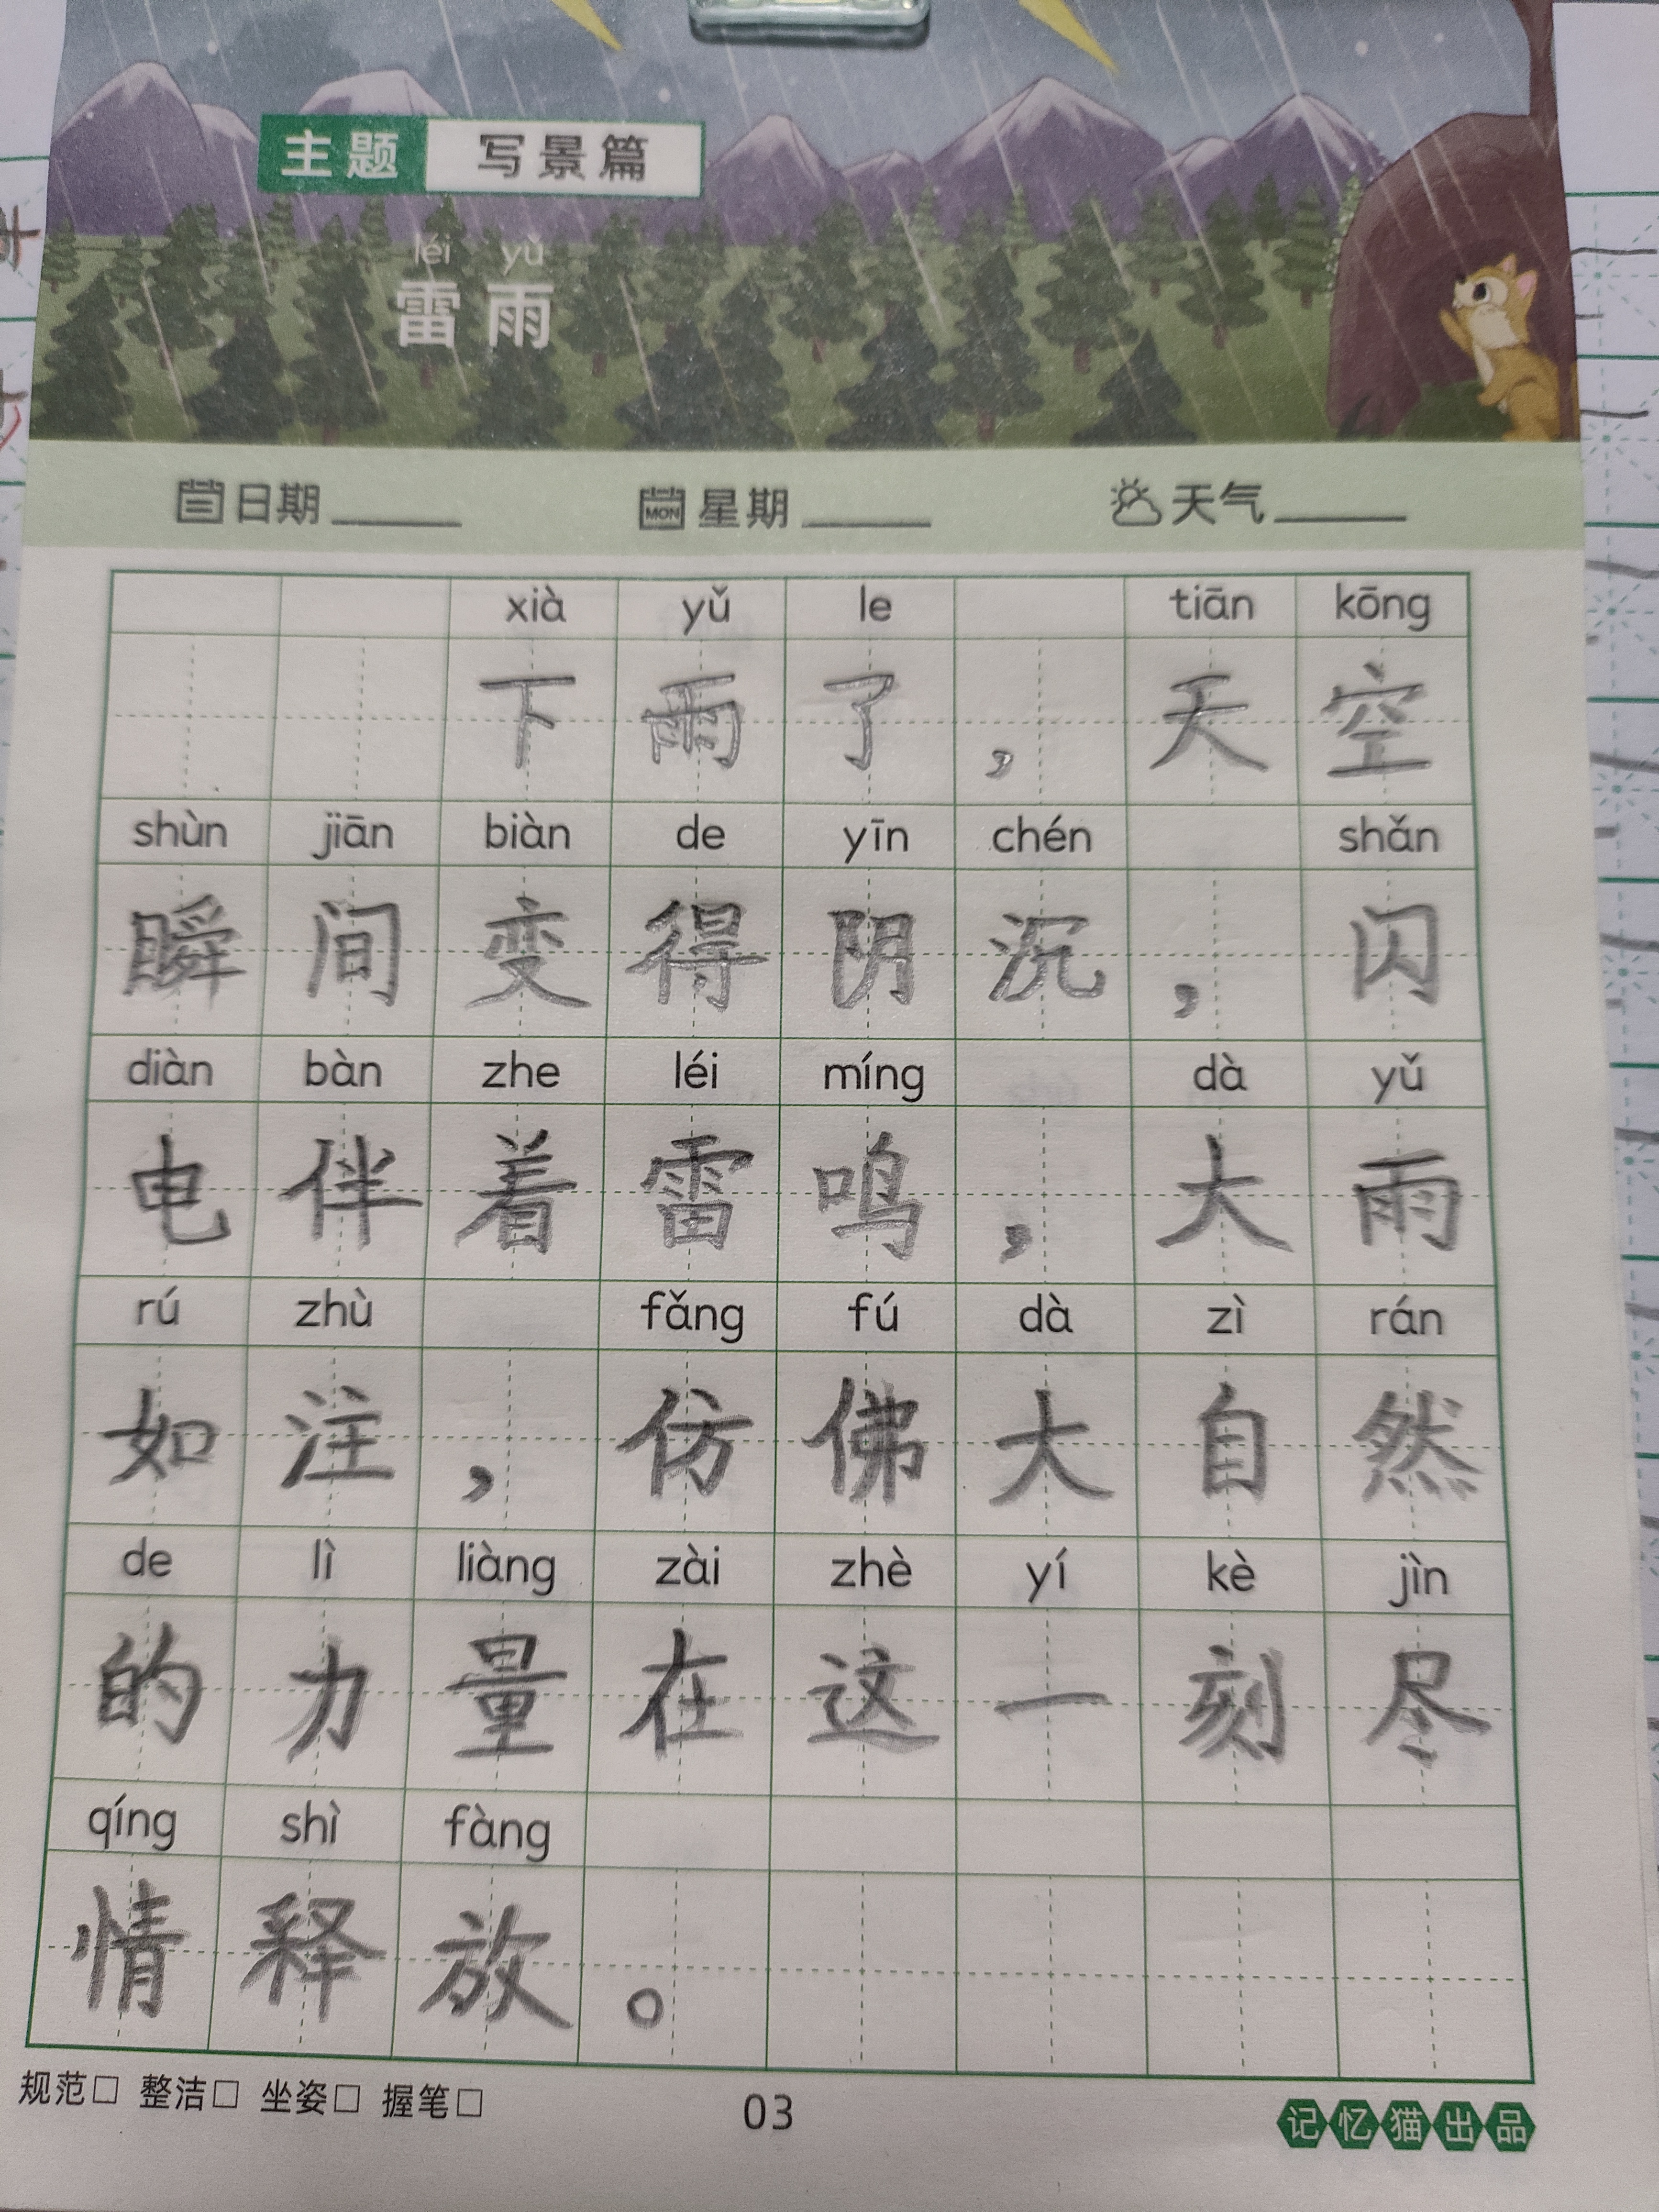 主题 写景篇
léi yǔ
雷雨
日期 星期 天气
MON
xià yǔ le tiān kōng
下雨了，天空
shùn jiān biàn de yīn chén shǎn
瞬间变得阴沉，闪
diàn bàn zhe léi míng dà yǔ
电伴着雷鸣，大雨
rú zhù fǎng fú dà zì rán
如注，仿佛大自然
de lì liàng zài zhè yí kè jìn
的力量在这一刻尽
qíng shì fàng
情释放。
规范□ 整洁□ 坐姿□ 握笔□
03
记忆猫出品